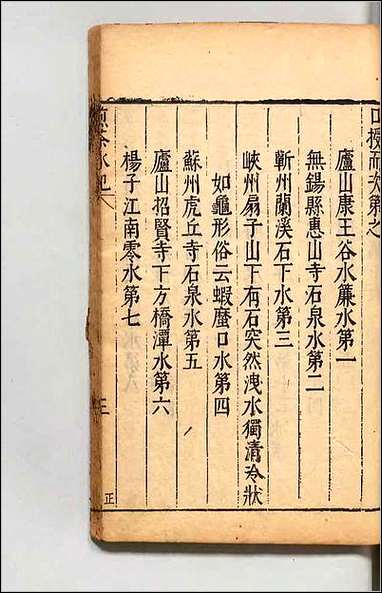 口授而次第之
廬山康王谷水簾水第一
無錫縣惠山寺石泉水第二
蘄州蘭溪石下水第三
峽州扇子山下有石突然洩水獨清冷狀
如龜形俗云蝦蟆口水第四
蘇州虎丘寺石泉水第五
廬山招賢寺下方橋潭水第六
楊子江南零水第七
煎茶水記
三
正